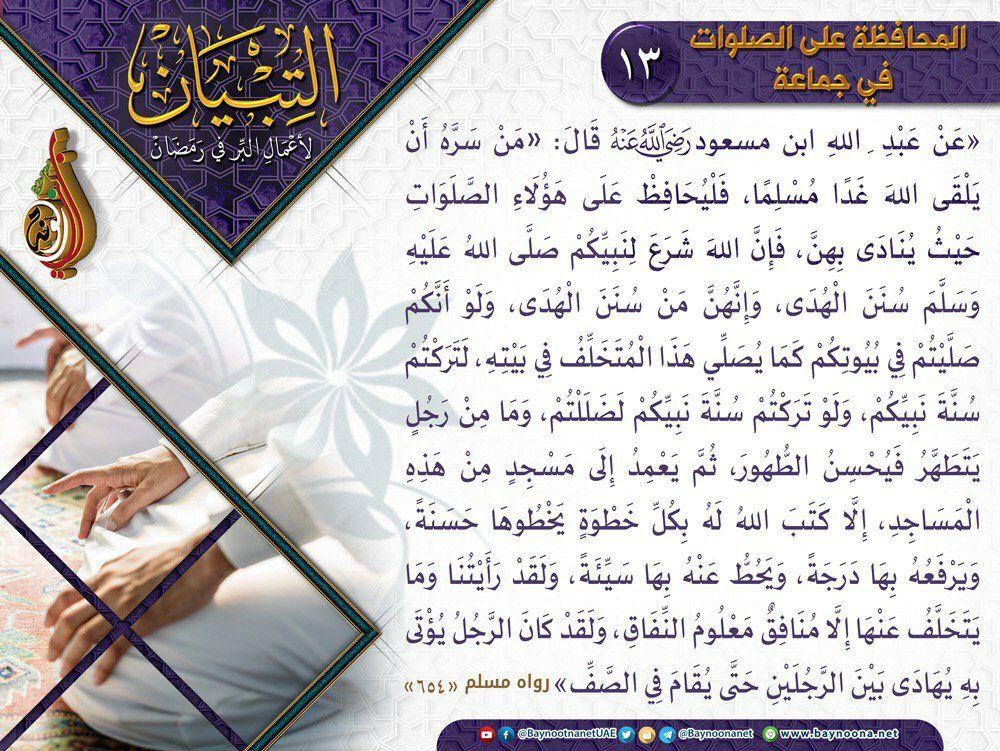 المحافظة على الصلوات
في جماعة
١٣
التِبْيَان
لأَعْمَالِ البِّرِ في رَمَضَانْ
«عَنْ عَبْدِ اللهِ ابن مسعود رَضِيَ اللَّهُ عَنْهُ قَالَ: «مَنْ سَرَّهُ أَنْ
يَلْقَى اللهَ غَدًا مُسْلِمًا، فَلْيُحَافِظْ عَلَى هَؤُلَاءِ الصَّلَوَاتِ
حَيْثُ يُنَادَى بِهِنَّ، فَإِنَّ اللهَ شَرَعَ لِنَبِيِّكُمْ صَلَّى اللهُ عَلَيْهِ
وَسَلَّمَ سُنَنَ الْهُدَى، وَإِنَّهُنَّ مَنْ سُنَنَ الْهُدَى، وَلَوْ أَنَّكُمْ
صَلَّيْتُمْ فِي بُيُوتِكُمْ كَمَا يُصَلِّي هَذَا الْمُتَخَلِّفُ فِي بَيْتِهِ، لَتَرَكْتُمْ
سُنَّةَ نَبِيِّكُمْ، وَلَوْ تَرَكْتُمْ سُنَّةَ نَبِيِّكُمْ لَضَلَلْتُمْ، وَمَا مِنْ رَجُلٍ
يَتَطَهَّرُ فَيُحْسِنُ الطُّهُورَ، ثُمَّ يَعْمِدُ إِلَى مَسْجِدٍ مِنْ هَذِهِ
الْمَسَاجِدِ، إِلَّا كَتَبَ اللهُ لَهُ بِكُلِّ خَطْوَةٍ يَخْطُوهَا حَسَنَةً،
وَيَرْفَعُهُ بِهَا دَرَجَةً، وَيَحُطُّ عَنْهُ بِهَا سَيِّئَةً، وَلَقَدْ رَأَيْتُنَا وَمَا
يَتَخَلَّفُ عَنْهَا إِلَّا مُنَافِقٌ مَعْلُومُ النِّفَاقِ، وَلَقَدْ كَانَ الرَّجُلُ يُؤْتَى
بِهِ يُهَادَى بَيْنَ الرَّجُلَيْنِ حَتَّى يُقَامَ فِي الصَّفِّ» رواه مسلم «٦٥٤»
@BaynootnanetUAE @Baynoonanet www.baynoona.net